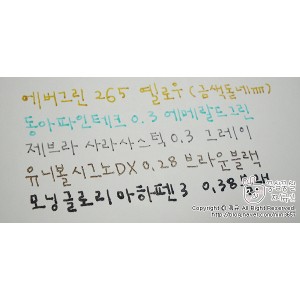 에버그린 265 옐로우 (금색돋네ㅠㅠ)
동아파인테크 0.3 에메랄드그린
제브라 사라사스틱 0.3 그레이
유니볼 시그노DX 0.28 브라운블랙
모닝글로리 마하펜3 0.38
Copyright ⓒ All Right Reserved